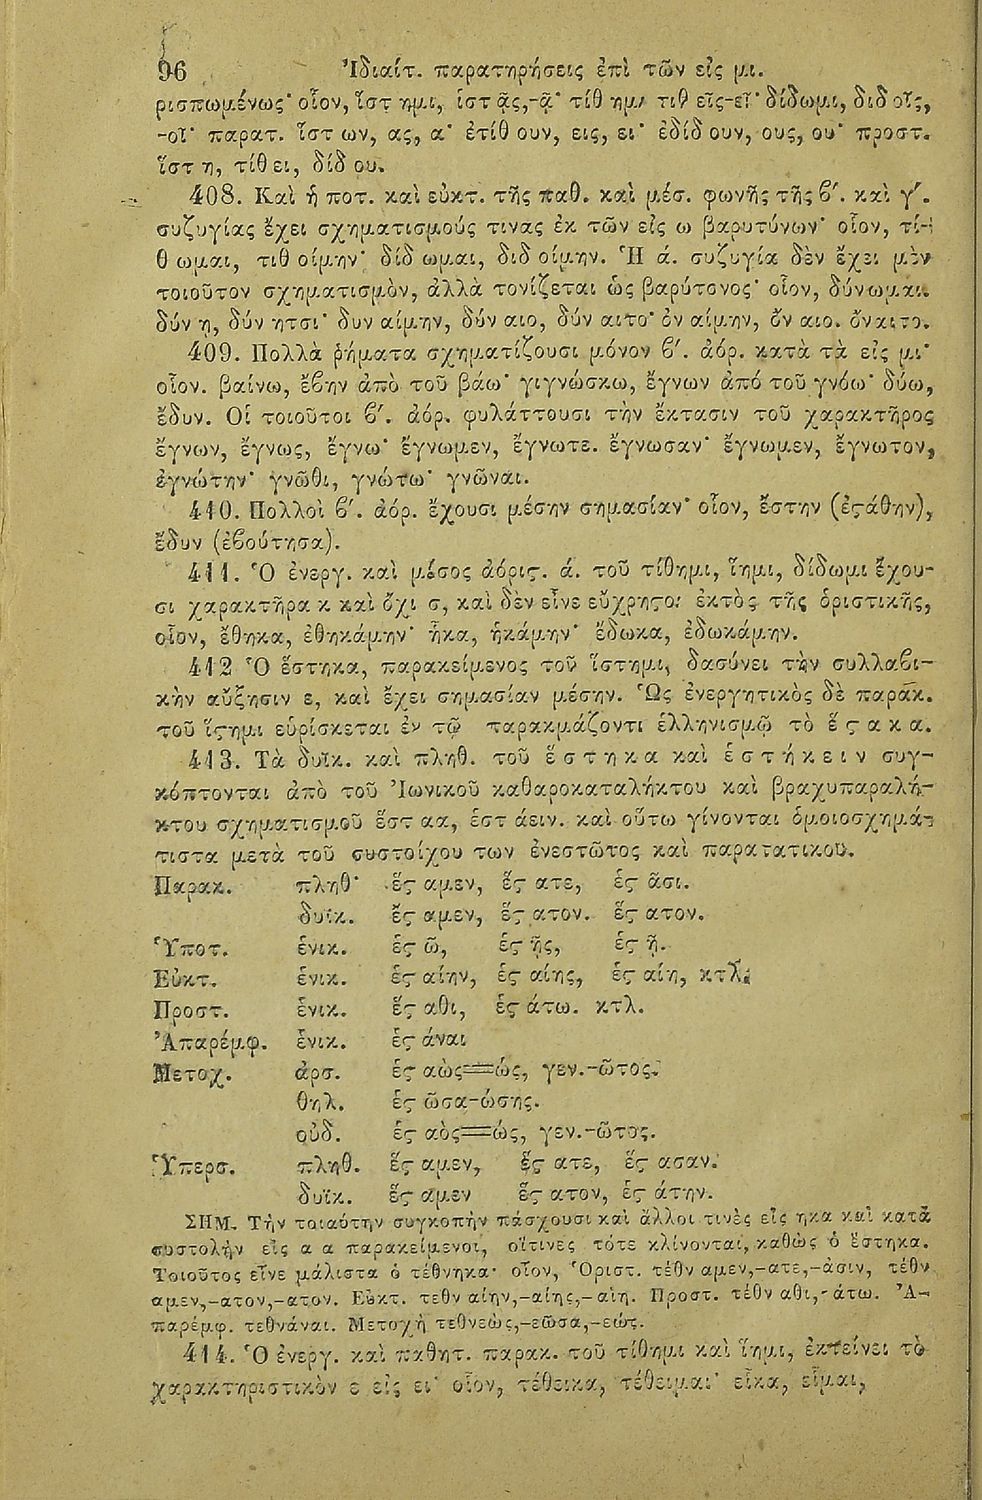 96 Ἰδιαίτ. παρατηρήσεις ἐπὶ τῶν εἰς μι.
ρισπωμένως· οἷον, ἵστ ημι, ἱστ ᾷς,-ᾷ· τίθ ημι τιθ εῖς-εῖ· δίδωμι, διδ οῖς,
-οῖ· παρατ. ἵστ ων, ας, α· ἐτίθ ουν, εις, ει· ἐδίδ ουν, ους, ου· προστ.
ἵστ η, τίθ ει, δίδ ου.
408. Καὶ ἡ ποτ. καὶ εὐκτ. τῆς παθ. καὶ μέσ. φωνῆς τῆς β΄. καὶ γ΄.
συζυγίας ἔχει σχηματισμούς τινας ἐκ τῶν εἰς ω βαρυτόνων· οἷον, τί-
θ ωμαι, τιθ οίμην· δίδ ωμαι, διδ οίμην. Ἡ ά. συζυγία δὲν ἔχει μὲν
τοιοῦτον σχηματισμὸν, ἀλλὰ τονίζεται ὡς βαρύτονος· οἷον, δύνωμαι.
δύν η, δύν ητσι· δυν αίμην, δύν αιο, δύν αιτο· ὀν αίμην, ὄν αιο. ὄναιτο.
409. Πολλὰ ῥήματα σχηματίζουσι μόνον β΄. ἀόρ. κατὰ τὰ εἰς μι·
οἷον. βαίνω, ἔβην ἀπὸ τοῦ βάω· γιγνώσκω, ἔγνων ἀπό τοῦ γνόω· δύω,
ἔδυν. Οἱ τοιοῦτοι β΄. ἀόρ. φυλάττουσι τὴν ἔκτασιν τοῦ χαρακτῆρος
ἔγνων, ἔγνως, ἔγνω· ἔγνωμεν, ἔγνωτε. ἔγνωσαν· ἔγνωμεν, ἔγνωτον,
ἐγνώτην· γνῶθι, γνώτω· γνῶναι.
410. Πολλοὶ β΄. ἀόρ. ἔχουσι μέσην σημασίαν· οἷον, ἔστην (ἐϛάθην),
ἔδυν (ἐβούτησα).
411. Ὁ ἐνεργ. καὶ μέσος ἀόριϛ. ά. τοῦ τίθημι, ἵημι, δίδωμι ἔχου-
σι χαρακτῆρα κ καὶ ὄχι σ, καὶ δὲν εἶνε εὔχρηϛοι ἐκτὸς τῆς ὁριστικῆς,
οἷον, ἔθηκα, ἐθηκάμην· ἧκα, ἡκάμην· ἔδωκα, ἐδωκάμην.
412 Ὁ ἕστηκα, παρακείμενος τοῦ ἵστημι, δασύνει τὴν συλλαβι-
κὴν αὔξησιν ε, καὶ ἔχει σημασίαν μέσην. Ὡς ἐνεργητικὸς δὲ παράκ.
τοῦ ἵϛημι εὑρίσκεται ἐν τῷ παρακμάζοντι ἑλληνισμῷ τὸ ἕ ϛ α κ α.
413. Τὰ δυϊκ. καὶ πληθ. τοῦ ἕ σ τ η κ α καὶ ἑ σ τ ή κ ε ι ν συγ-
κόπτονται ἀπὸ τοῦ Ἰωνικοῦ καθαροκαταλήκτου καὶ βραχυπαραλή-
κτου σχηματισμοῦ ἕστ αα, ἑστ άειν. καὶ οὕτω γίνονται ὁμοιοσχημά-
τιστα μετὰ τοῦ συστοίχου των ἐνεστῶτος καὶ παρατατικοῦ.
Παρακ. πληθ· ἕϛ αμεν, ἕϛ ατε, ἑϛ ᾶσι.
δυϊκ. ἕϛ αμεν, ἕϛ ατον. ἕϛ ατον.
Ὑποτ. ἑνικ. ἑϛ ῶ, ἑϛ ῇς, ἑϛ ῇ.
Εὐκτ. ἑνικ. ἑϛ αίην, ἑϛ αίης, ἑϛ αίη, κτλ.
Προστ. ἑνικ. ἕϛ αθι, ἑϛ άτω. κτλ.
Ἀπαρέμφ. ἑνικ. ἑϛ άναι
Μετοχ. ἀρσ. ἑϛ αὼς=ώς, γεν.-ῶτος.
θηλ. ἑϛ ῶσα-ώσης.
οὐδ. ἑϛ αὸς=ώς, γεν.-ῶτος.
Ὑπερσ. πληθ. ἕϛ αμεν, ἕϛ ατε, ἕϛ ασαν.
δυϊκ. ἕϛ αμεν ἕϛ ατον, ἑϛ άτην.
ΣΗΜ. Τὴν τοιαύτην συγκοπὴν πάσχουσι καὶ ἄλλοι τινὲς εἰς ηκα καὶ κατὰ
συστολὴν εἰς α α παρακείμενοι, οἵτινες τότε κλίνονται, καθὼς ὁ ἕστηκα.
Τοιοῦτος εἶνε μάλιστα ὁ τέθνηκα· οἷον, Ὁριστ. τέθν αμεν,-ατε,-ᾶσιν, τέθν
αμεν,-ατον,-ατον. Εὐκτ. τεθν αίην,-αίης,-αίη. Προστ. τέθν αθι,-άτω. Ἀ-
παρέμφ. τεθνάναι. Μετοχὴ τεθνεὼς,-εῶσα,-εώς.
414. Ὁ ἐνεργ. καὶ παθητ. παρακ. τοῦ τίθημι καὶ ἵημι, ἐκτείνει τὸ
χαρακτηριστικὸν ε εἰς ει· οἷον, τέθεικα, τέθειμαι· εἷκα, εἷμαι,